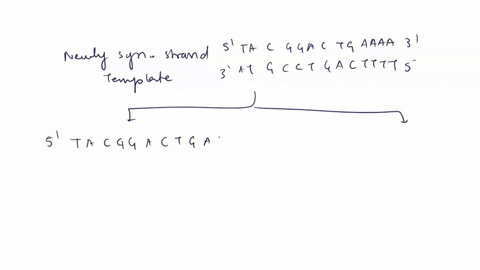 Newly syn. strand 5' TA C GGAC TG AAAA 3'
Template 3' AT G CCT G ACTTTT 5'
5' T A C G G A C T G A